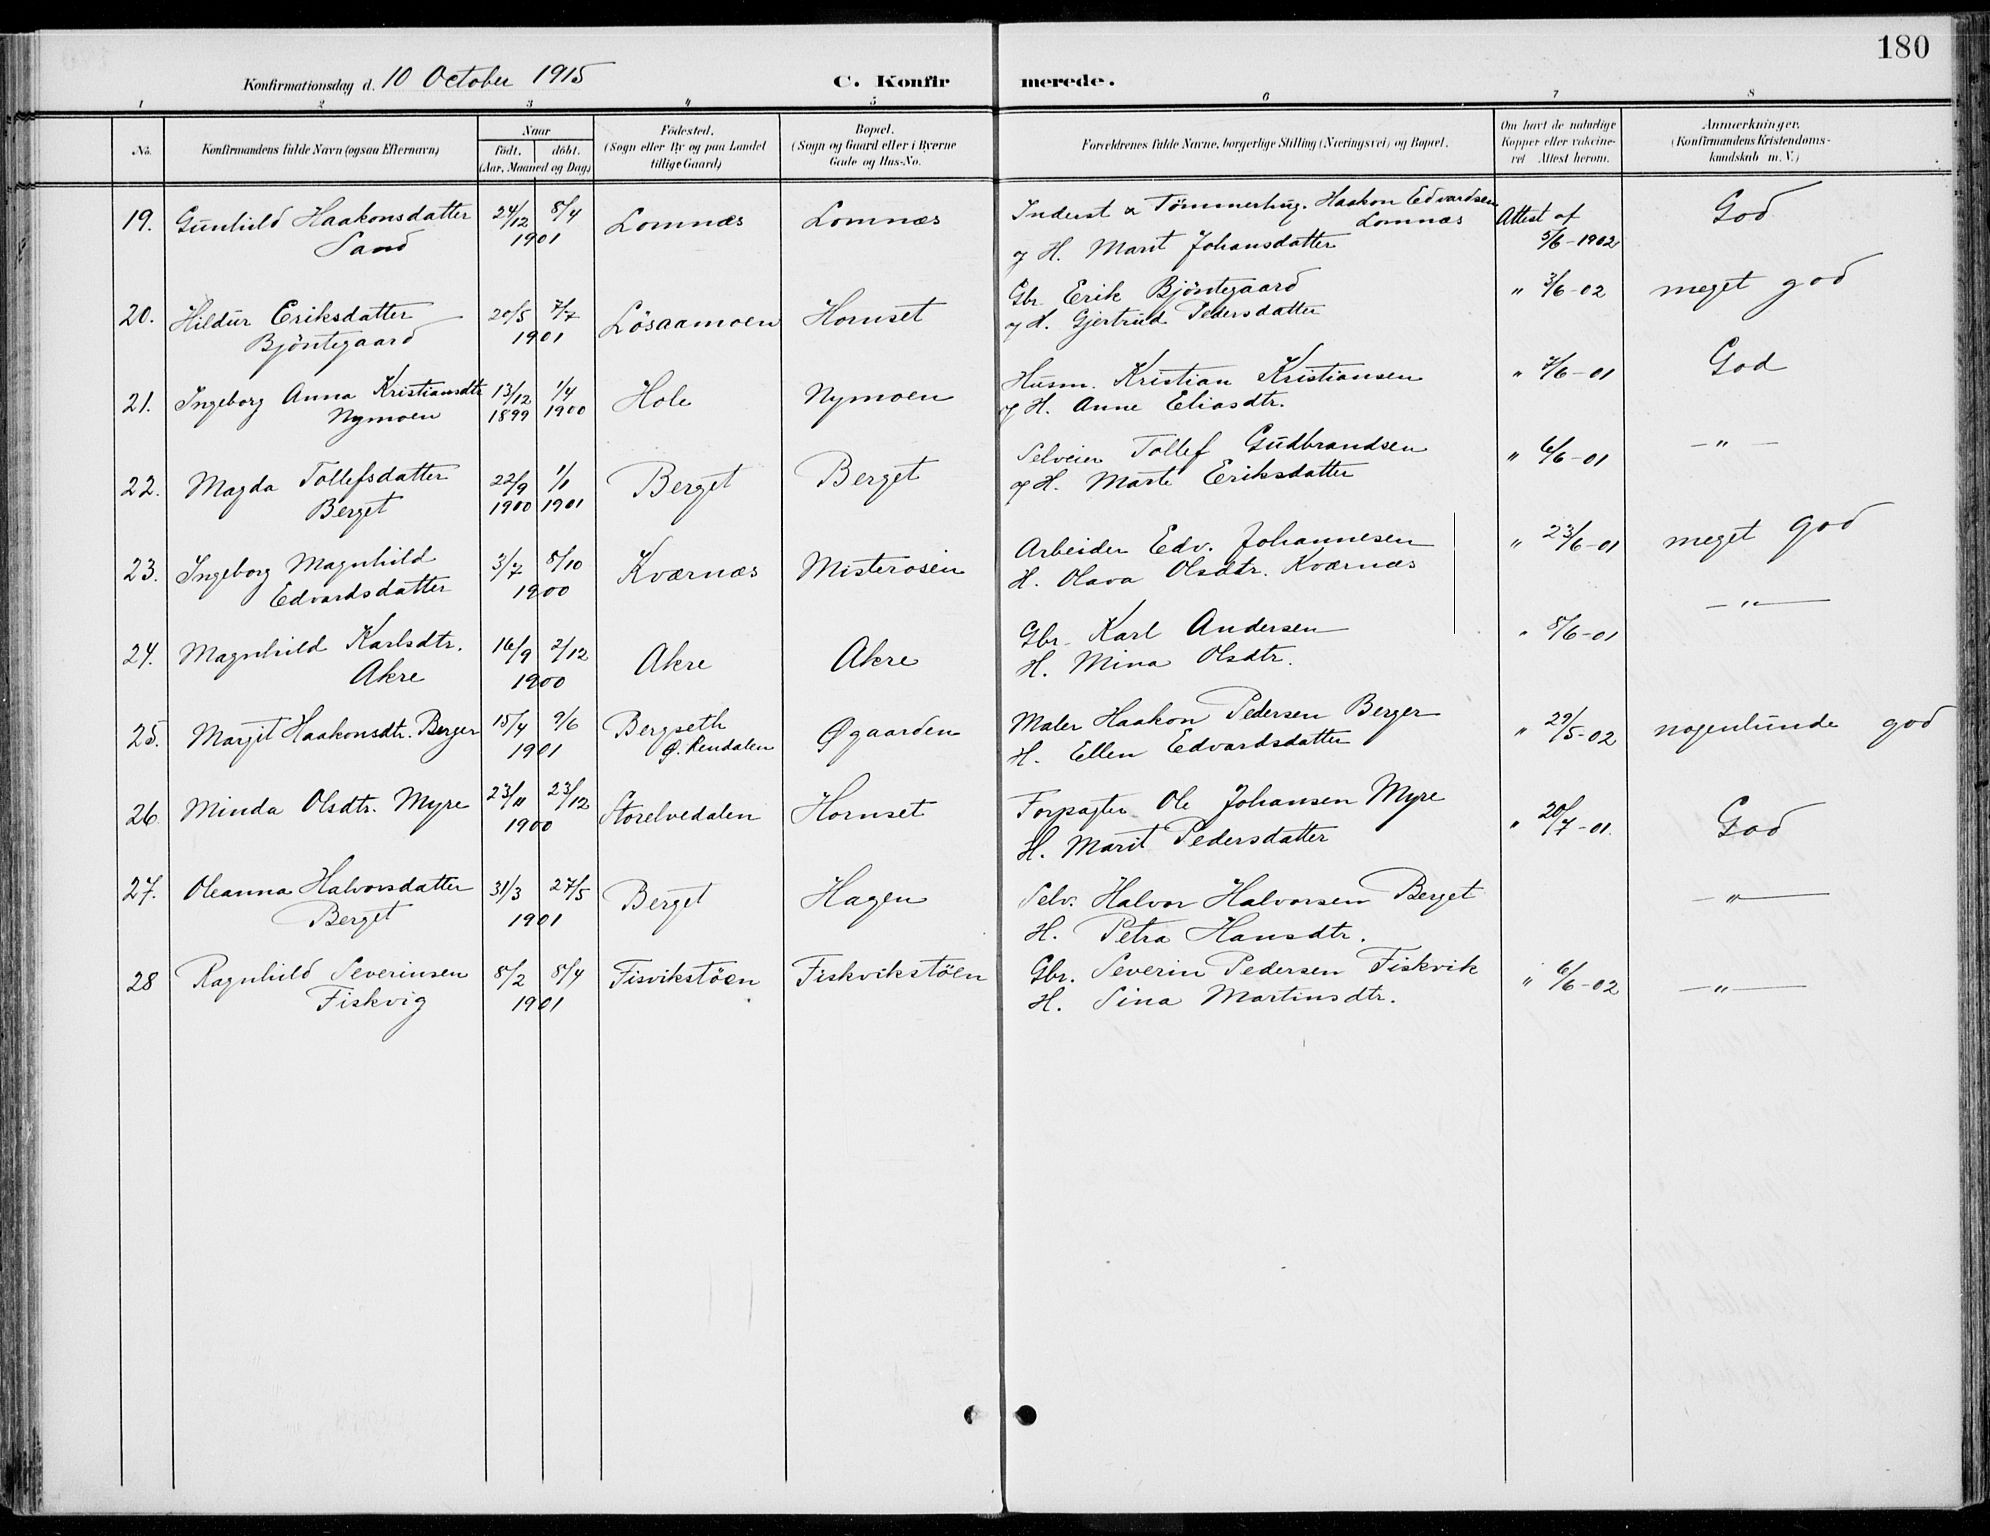 180
Konfirmationsdag d. 10 October 1915 C. Konfirmerede.
1 2 3 4 5 6 7 8
No. Konfirmandens fulde Navn (ogsaa Efternavn) Naar født. døbt. (Aar, Maaned og Dag) Fødested. (Sogn eller By og paa Landet tillige Gaard) Bopæl. (Sogn og Gaard eller i Byerne Gade og Hus-No. Forældrenes fulde Navne, borgerlige Stilling (Næringsvei) og Bopæl. Om havt de naturlige Kopper eller vakcineret Attest herom. Anmærkninger. (Konfirmandens Kristendomskundskab m. V.)
19. Gunhild Haakonsdatter 24/12 8/4 Lomnæs Lomnæs Inderst & Tømmerhug. Haakon Edvardsen Attest af God
Sand 1901 Lomnæs 5/6-1902
og H. Marit Johansdatter
20. Hildur Eriksdatter 20/5 7/7 Løsaamoen Hornset Gbr. Erik Bjøntegaard " 3/6-02 meget god
Bjøntegaard 1901 og H. Gjertrud Pedersdatter
21. Ingeborg Anna Kristiansdtr 13/12 1/4 Hole Nymoen Husm. Kristian Kristiansen " 7/6-01 God
Nymoen 1899 1900 og H. Anne Eliasdtr.
22. Magda Tollefsdatter 22/9 1/1 Berget Berget Selveier Tollef Gudbrandsen " 6/6-01 — " —
Berget 1900 1901 og H. Marte Eriksdatter
23. Ingeborg Magnhild 3/7 8/10 Kværnæs Misterosen Arbeider Edv. Johannesen " 23/6-01 meget god
Edvardsdatter 1900 H. Olava Olsdtr. Kværnæs
24. Magnhild Karlsdtr. 16/9 2/12 Akre Akre Gbr. Karl Andersen " 8/6-01 — " —
Akre 1900 H. Mina Olsdtr.
25. Margit Haakonsdtr. Berger 15/4 9/6 Bergseth Øgaarden Maler Haakon Pedersen Berger " 29/5-02 nogenlunde god
1901 Ø. Rendalen H. Ellen Edvardsdatter
26. Minda Olsdtr. Myre 23/11 23/12 Storelvedalen Hornset Forpagter Ole Johansen Myre " 20/7-01. God
1900 H. Marit Pedersdatter
27. Oleanna Halvorsdatter 31/3 27/5 Berget Hagen Selv. Halvor Halvorsen Berget — " —
Berget 1901 H. Petra Hansdtr.
28 Ragnhild Severinsen 8/2 8/4 Fisvikstøen Fiskvikstøen Gbr. Severin Pedersen Fiskvik " 6/6-02 — " —
Fiskvig 1901 H. Sina Martinsdtr.